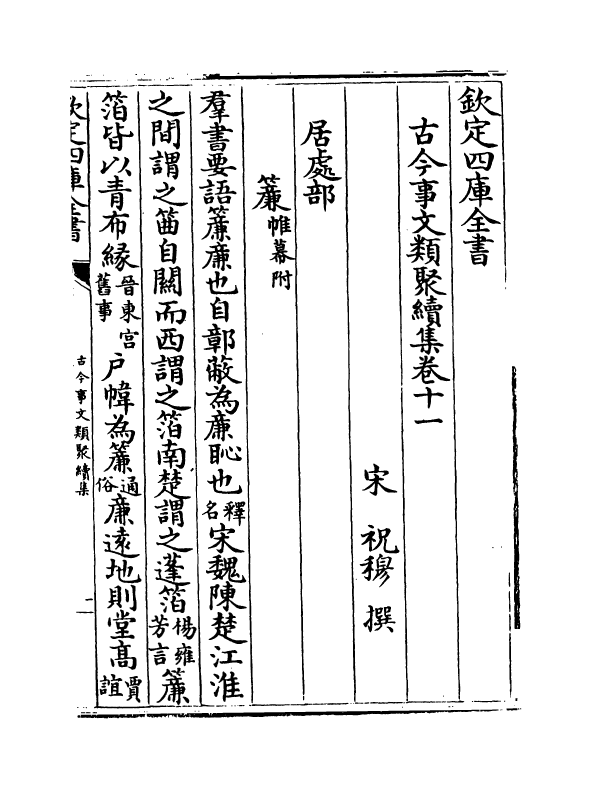 欽定四庫全書
古今事文類聚續集卷十一
宋 祝穆 撰
居處部
簾帷幕附
羣書要語簾廉也自鄣蔽為廉恥也釋名宋魏陳楚江淮
之間謂之𥬔自關而西謂之箔南楚謂之蓬箔楊雍芳言簾
箔皆以青布緣晉東宮舊事戶幃為簾通俗廉遠地則堂高賈誼
欽定四庫全書
古今事文類聚續集
一